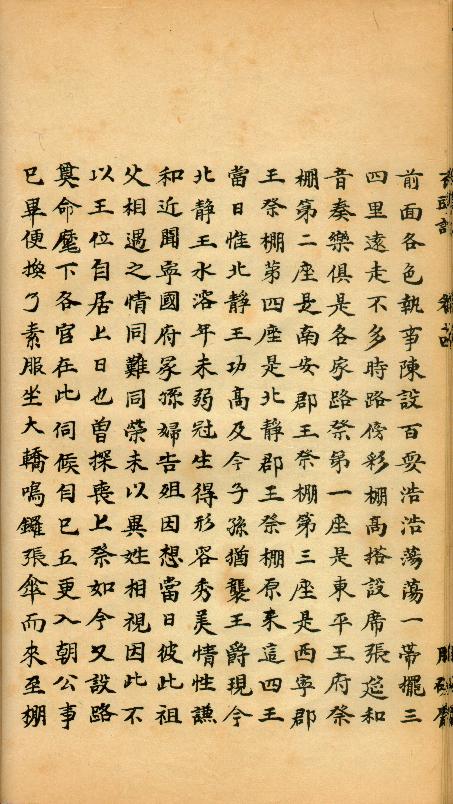 前面各色執事陳設百耍浩浩蕩蕩一帶擺三
四里遠走不多時路傍彩棚高搭設席張筵和
音奏樂俱是各家路祭第一座是東平王府祭
棚第二座是南安郡王祭棚第三座是西寧郡
王祭棚第四座是北靜郡王祭棚原来這四王
當日惟北靜王功高及今子孫猶襲王爵現今
北靜王水溶年未弱冠生得形容秀美情性謙
和近聞寧國府冢孫婦告殂因想當日彼此祖
父相遇之情同難同榮未以異姓相視因此不
以王位自居上日也曽探喪上祭如今又設路
奠命麾下各官在此伺候自巳五更入朝公事
巳畢便換了素服坐大轎鳴鑼張傘而來至棚